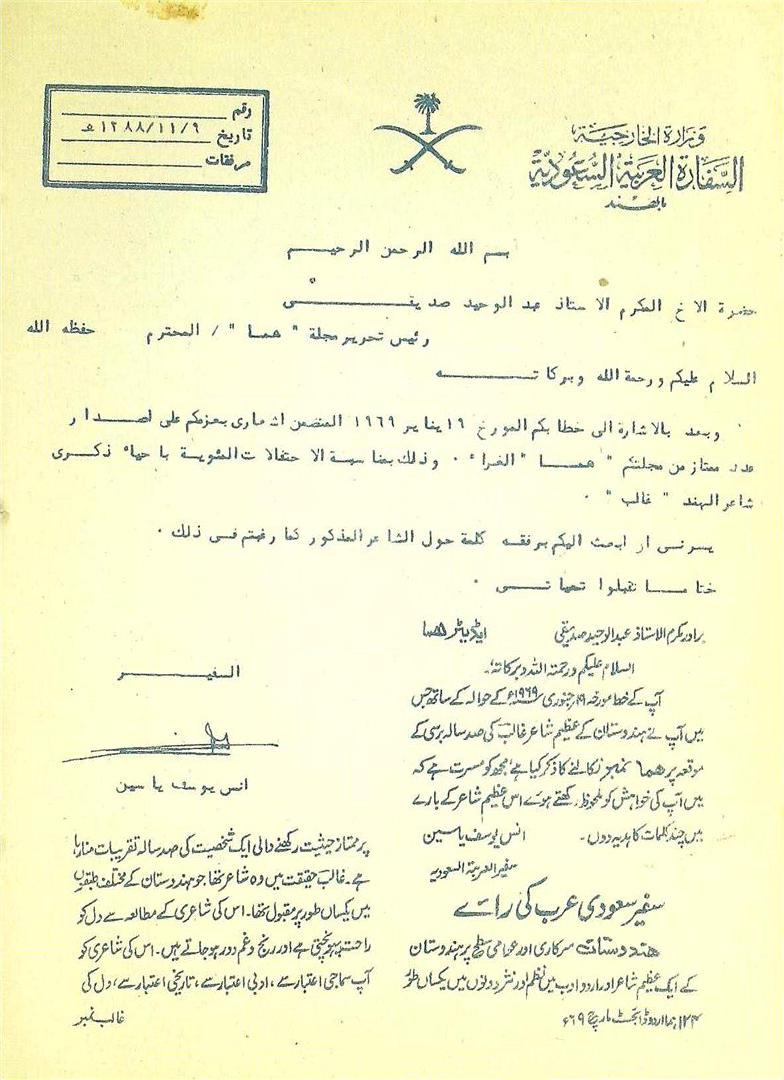 وزارة الخارجية
السفارة العربية السعودية
بالهند
رقم
تاريخ ١٣٨٨/١١/٩ هـ
مرفقات
بسم الله الرحمن الرحيم
حضرة الاخ المكرم الاستاذ عبد الوحيد صديقى
رئيس تحرير مجلة " هما " / المحترم حفظه الله
السلام عليكم ورحمة الله وبركاته
وبعد بالاشارة الى خطابكم المورخ ١٩ يناير ١٩٦٩ المتضمن اشعارى بعزمكم على اصدار
عدد ممتاز من مجلتكم " هما " الغراء . وذلك بمناسبة الاحتفالات المئوية باحياء ذكرى
شاعر الهند " غالب " .
يسرنى ان ابعث اليكم برفقه كلمة حول الشاعر المذكور كما رغبتم فى ذلك .
ختاما تقبلوا تحياتى .
السفير
انس يوسف ياسين
برادر مکرم الاستاذ عبدالوحید صدیقی ایڈیٹر ھما
السلام علیکم ورحمتہ اللہ وبرکاتہ،
آپ کے خط مورخہ ۱۹ر جنوری ۱۹۶۹ء کے حوالہ کے ساتھ جس
میں آپ نے ہندوستان کے عظیم شاعر غالب کی صد سالہ برسی کے
موقعہ پر ھما نمبر نکالنے کا ذکر کیا ہے، مجھ کو مسرت ہے کہ
میں آپ کی خواہش کو ملحوظ رکھتے ہوئے اس عظیم شاعر کے بارے
میں چند کلمات کا ہدیہ دوں۔ انس یوسف یاسین
سفیر العربیۃ السعودیہ
سفیر سعودی عرب کی رائے
ھندوستان سرکاری اور عوامی سطح پر ہندوستان
کے ایک عظیم شاعر اور اردو ادب میں نظم اور نثر دونوں میں یکساں طور
پر ممتاز حیثیت رکھنے والی ایک شخصیت کی صد سالہ تقریبات منا رہا
ہے۔ غالب حقیقت میں وہ شاعر تھا جو ہندوستان کے مختلف طبقوں
میں یکساں طور پر مقبول تھا۔ اس کی شاعری کے مطالعہ سے دل کو
راحت پہونچتی ہے اور رنج و غم دور ہو جاتے ہیں۔ اس کی شاعری کو
آپ سماجی اعتبار سے، ادبی اعتبار سے، تاریخی اعتبار سے، دل کی
ہما اردو ڈائجسٹ مارچ ۶۹ء
غالب نمبر